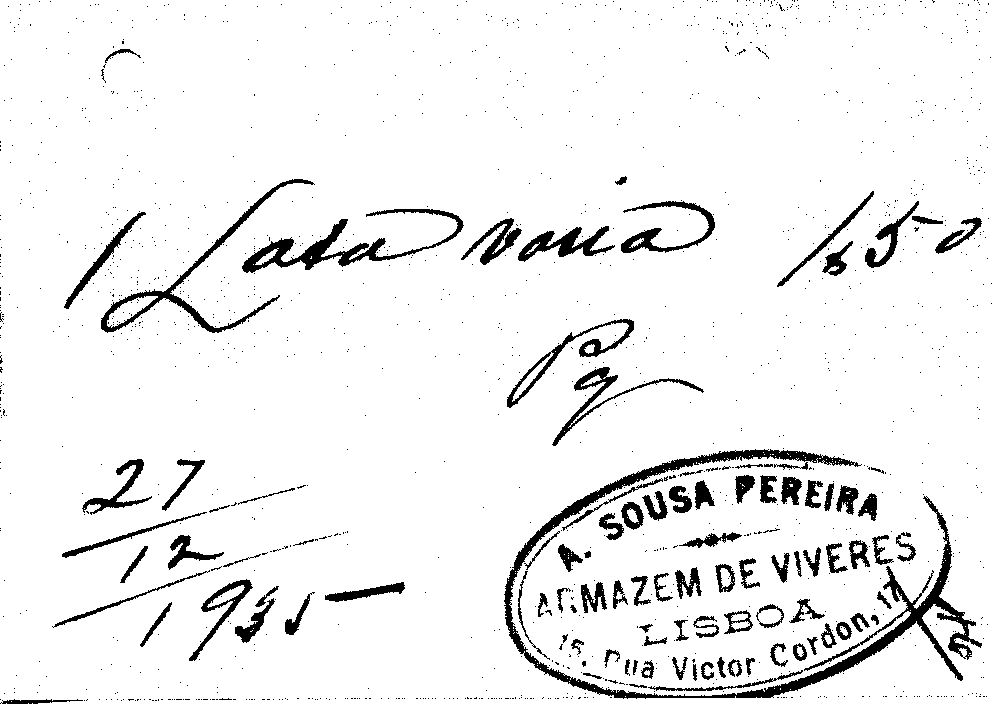 1 Lata vasia 1$50
Pg
27
12
1935
A. SOUSA PEREIRA
ARMAZEM DE VIVERES
LISBOA
15, Rua Victor Cordon, 17